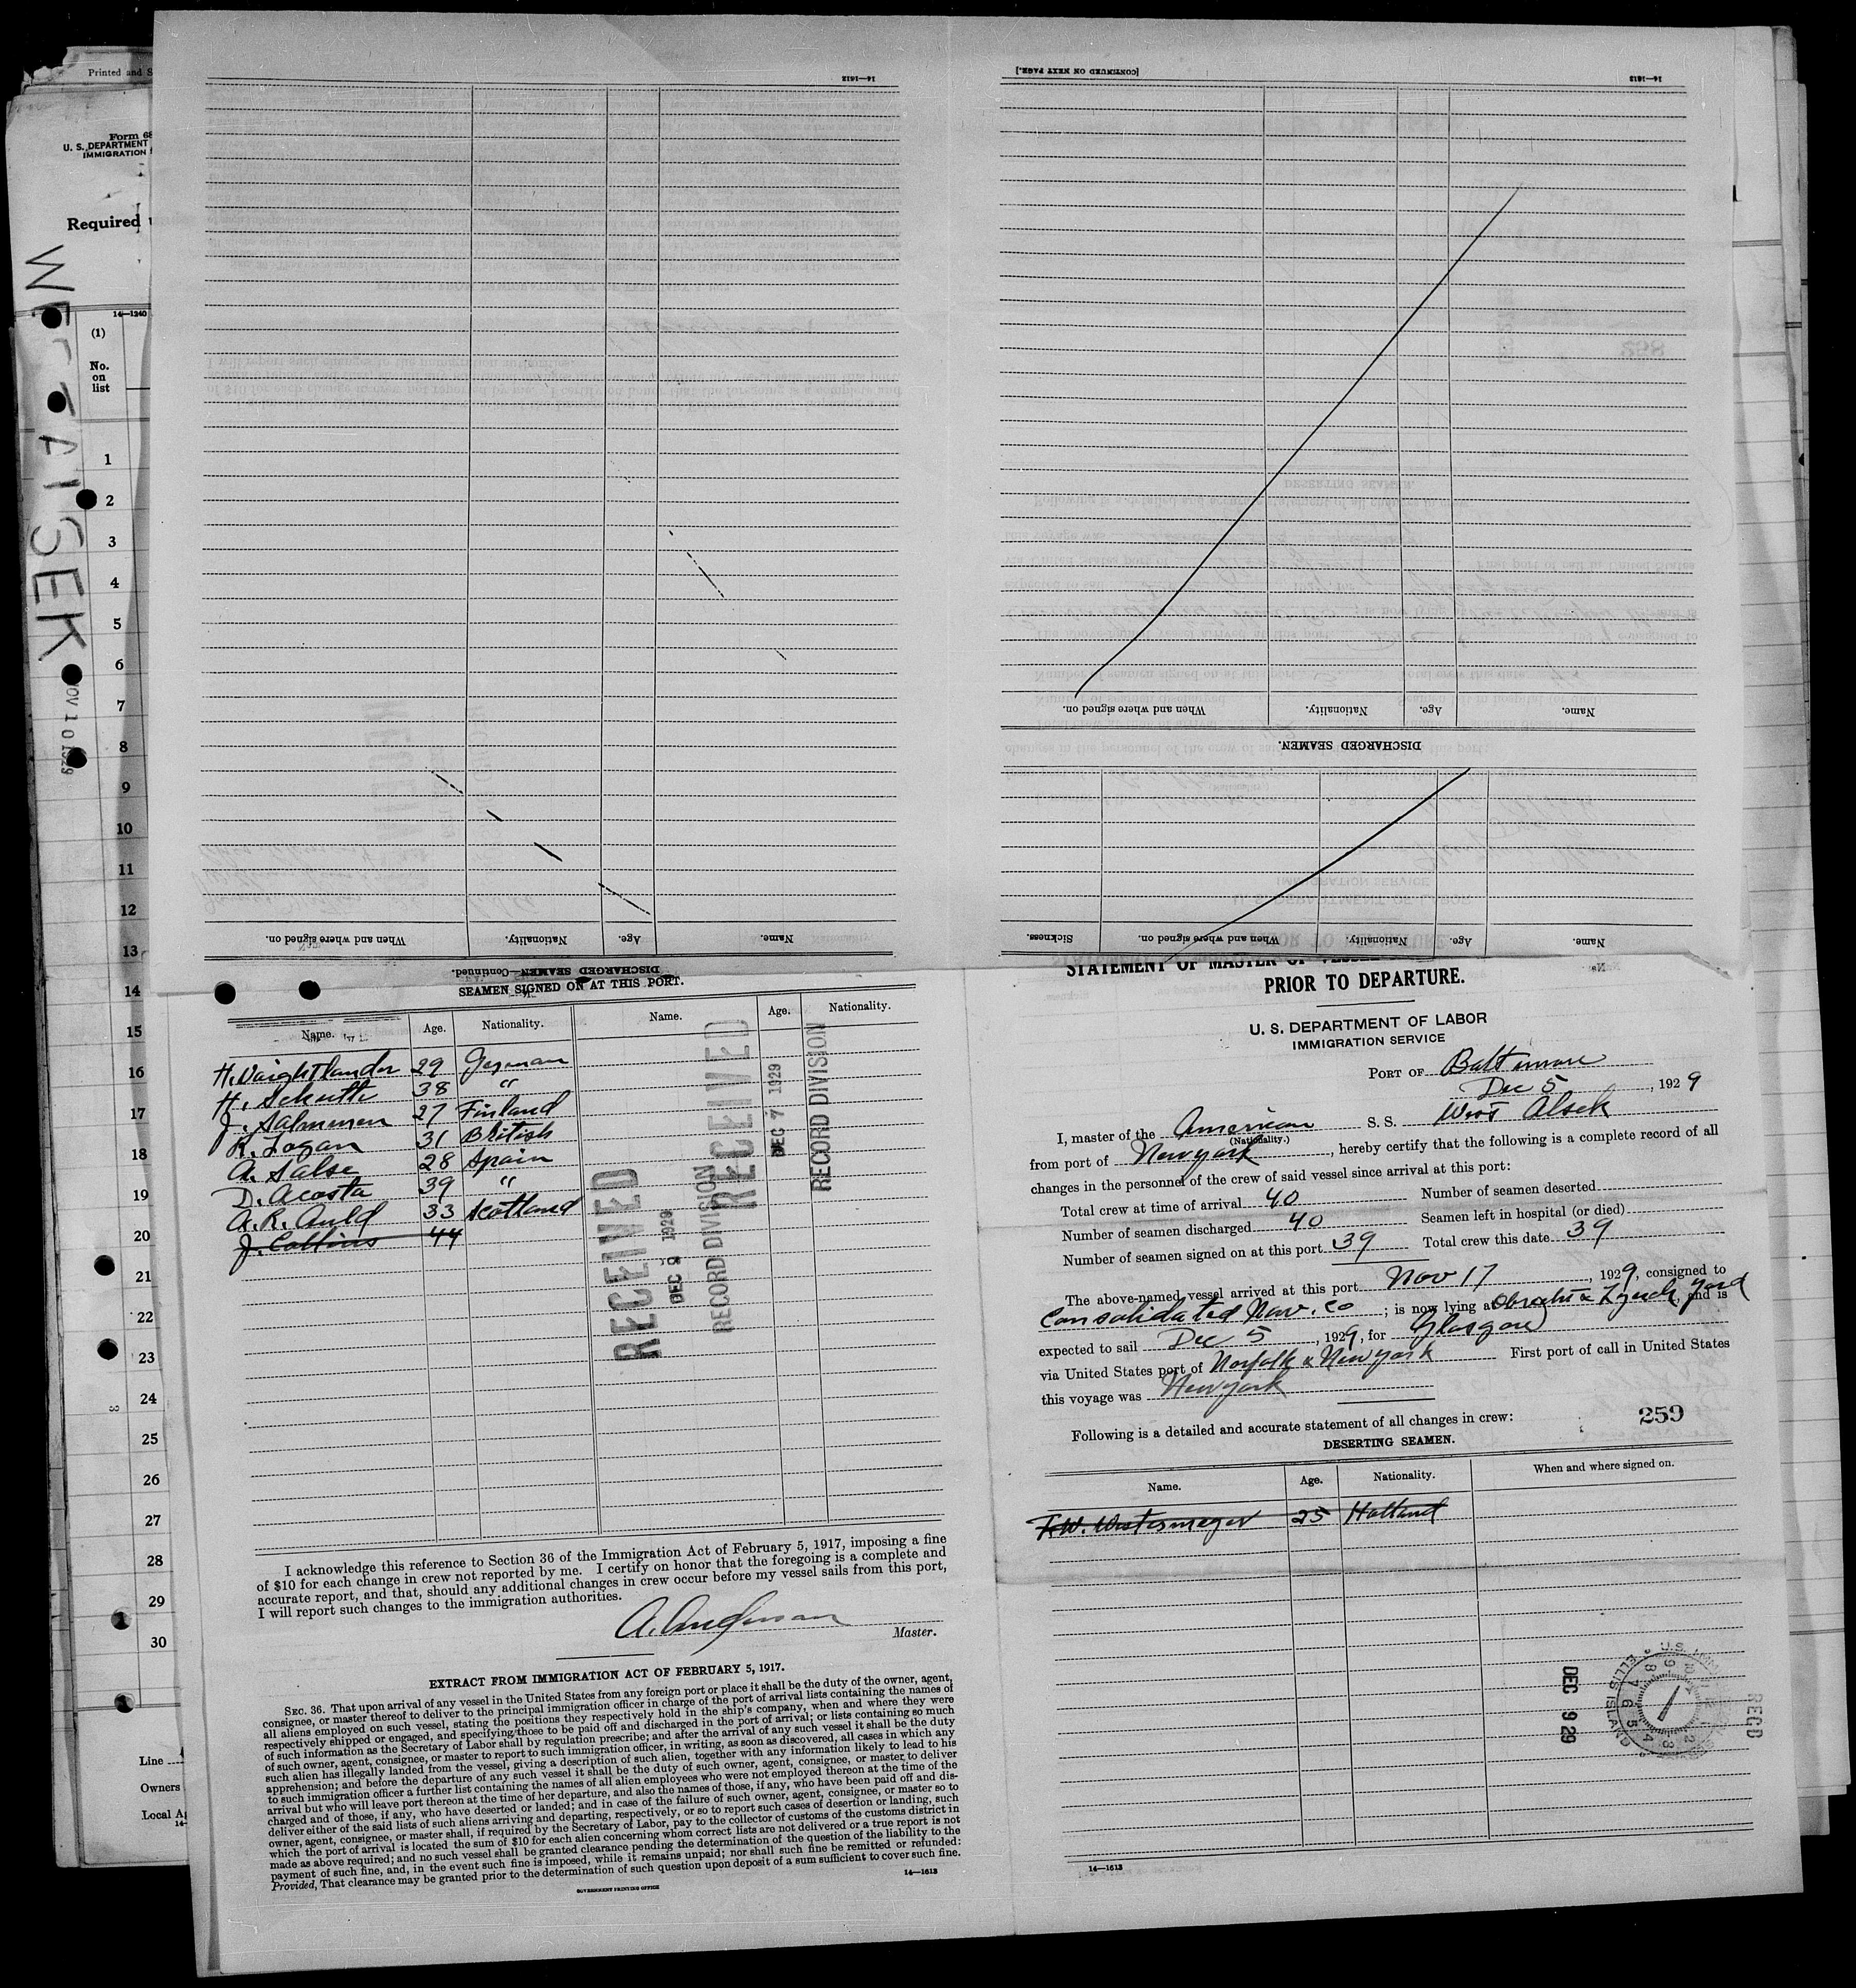 Printed and S
Form 68
U. S. DEPARTMENT
IMMIGRATION
Required
WEST ALSEK
NOV 10 1929
14—1240
(1)
No.
on
list
1
2
3
4
5
6
7
8
9
10
11
12
13
14
15
16
17
18
19
20
21
22
23
24
25
26
27
28
29
30
3
Line
Owners
Local A
14—
14—1612
[CONTINUED ON NEXT PAGE.]
14—1612
Name. Age. Nationality. When and where signed on.
DISCHARGED SEAMEN.
Name. Age. Nationality. When and where signed on. Sickness.
Name. Age. Nationality. When and where signed on.
DISCHARGED SEAMEN—Continued.
SEAMEN SIGNED ON AT THIS PORT.
Name. Age. Nationality. Name. Age. Nationality.
H. Vaightlander 29 German
H. Schutte 38 "
J. Salminen 27 Finland
R. Logan 31 British
A. Salse 28 Spain
D. Acosta 39 "
A. R. Auld 33 Scotland
J. Collins 44
RECEIVED
DEC 9 1929
RECORD DIVISION
RECEIVED
DEC 7 1929
RECORD DIVISION
I acknowledge this reference to Section 36 of the Immigration Act of February 5, 1917, imposing a fine
of $10 for each change in crew not reported by me. I certify on honor that the foregoing is a complete and
accurate report, and that, should any additional changes in crew occur before my vessel sails from this port,
I will report such changes to the immigration authorities.
A. Anderson
Master.
EXTRACT FROM IMMIGRATION ACT OF FEBRUARY 5, 1917.
SEC. 36. That upon arrival of any vessel in the United States from any foreign port or place it shall be the duty of the owner, agent,
consignee, or master thereof to deliver to the principal immigration officer in charge of the port of arrival lists containing the names of
all aliens employed on such vessel, stating the positions they respectively hold in the ship's company, when and where they were
respectively shipped or engaged, and specifying those to be paid off and discharged in the port of arrival; or lists containing so much
of such information as the Secretary of Labor shall by regulation prescribe; and after the arrival of any such vessel it shall be the duty
of such owner, agent, consignee, or master to report to such immigration officer, in writing, as soon as discovered, all cases in which any
such alien has illegally landed from the vessel, giving a description of such alien, together with any information likely to lead to his
apprehension; and before the departure of any such vessel it shall be the duty of such owner, agent, consignee, or master to deliver
to such immigration officer a further list containing the names of all alien employees who were not employed thereon at the time of the
arrival but who will leave port thereon at the time of her departure, and also the names of those, if any, who have been paid off and dis-
charged and of those, if any, who have deserted or landed; and in case of the failure of such owner, agent, consignee, or master so to
deliver either of the said lists of such aliens arriving and departing, respectively, or so to report such cases of desertion or landing, such
owner, agent, consignee, or master shall, if required by the Secretary of Labor, pay to the collector of customs of the customs district in
which the port of arrival is located the sum of $10 for each alien concerning whom correct lists are not delivered or a true report is not
made as above required; and no such vessel shall be granted clearance pending the determination of the question of the liability to the
payment of such fine, and, in the event such fine is imposed, while it remains unpaid; nor shall such fine be remitted or refunded:
Provided, That clearance may be granted prior to the determination of such question upon deposit of a sum sufficient to cover such fine.
14—1613
GOVERNMENT PRINTING OFFICE
STATEMENT OF MASTER OF VESSEL
PRIOR TO DEPARTURE.
U. S. DEPARTMENT OF LABOR
IMMIGRATION SERVICE
PORT OF Baltimore
Dec 5, 1929
I, master of the American S. S. West Alsek
(Nationality.)
from port of New York, hereby certify that the following is a complete record of all
changes in the personnel of the crew of said vessel since arrival at this port:
Total crew at time of arrival 40 Number of seamen deserted
Number of seamen discharged 40 Seamen left in hospital (or died)
Number of seamen signed on at this port 39 Total crew this date 39
The above-named vessel arrived at this port Nov 17, 1929, consigned to
Consolidated Nav. Co; is now lying at Obrecht & Lynch Yard, and is
expected to sail Dec 5, 1929, for Glasgow
via United States port of Norfolk & New York First port of call in United States
this voyage was New York
Following is a detailed and accurate statement of all changes in crew:
259
DESERTING SEAMEN.
Name. Age. Nationality. When and where signed on.
Westermeyer 25 Holland
DEC 9 29
ELLIS ISLAND
REC'D
14—1613